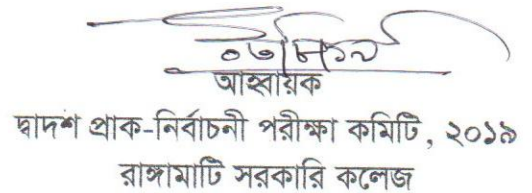 আহ্বায়ক
দ্বাদশ প্রাক-নির্বাচনী পরীক্ষা কমিটি, ২০১৯
রাঙ্গামাটি সরকারি কলেজ